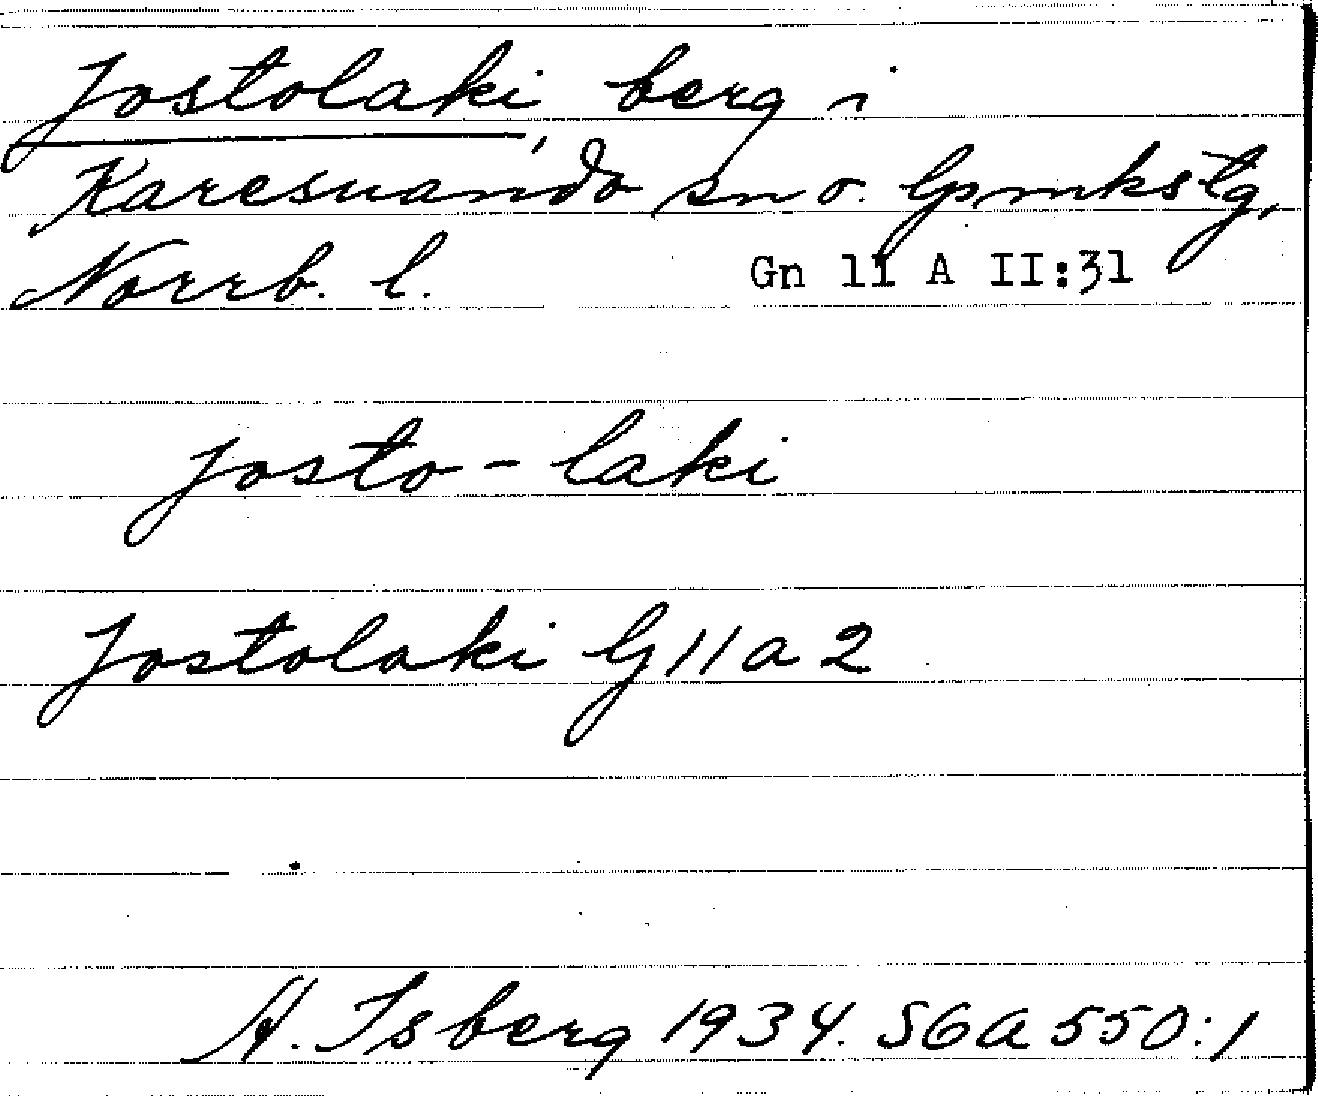 Jostolaki, berg i
Karesuando sn o. lpmkstg,
Norrb. l. Gn 11 A II:31
Josto - laki
Jostolaki G 11 a 2
H. Isberg 1934. SGA 550:1